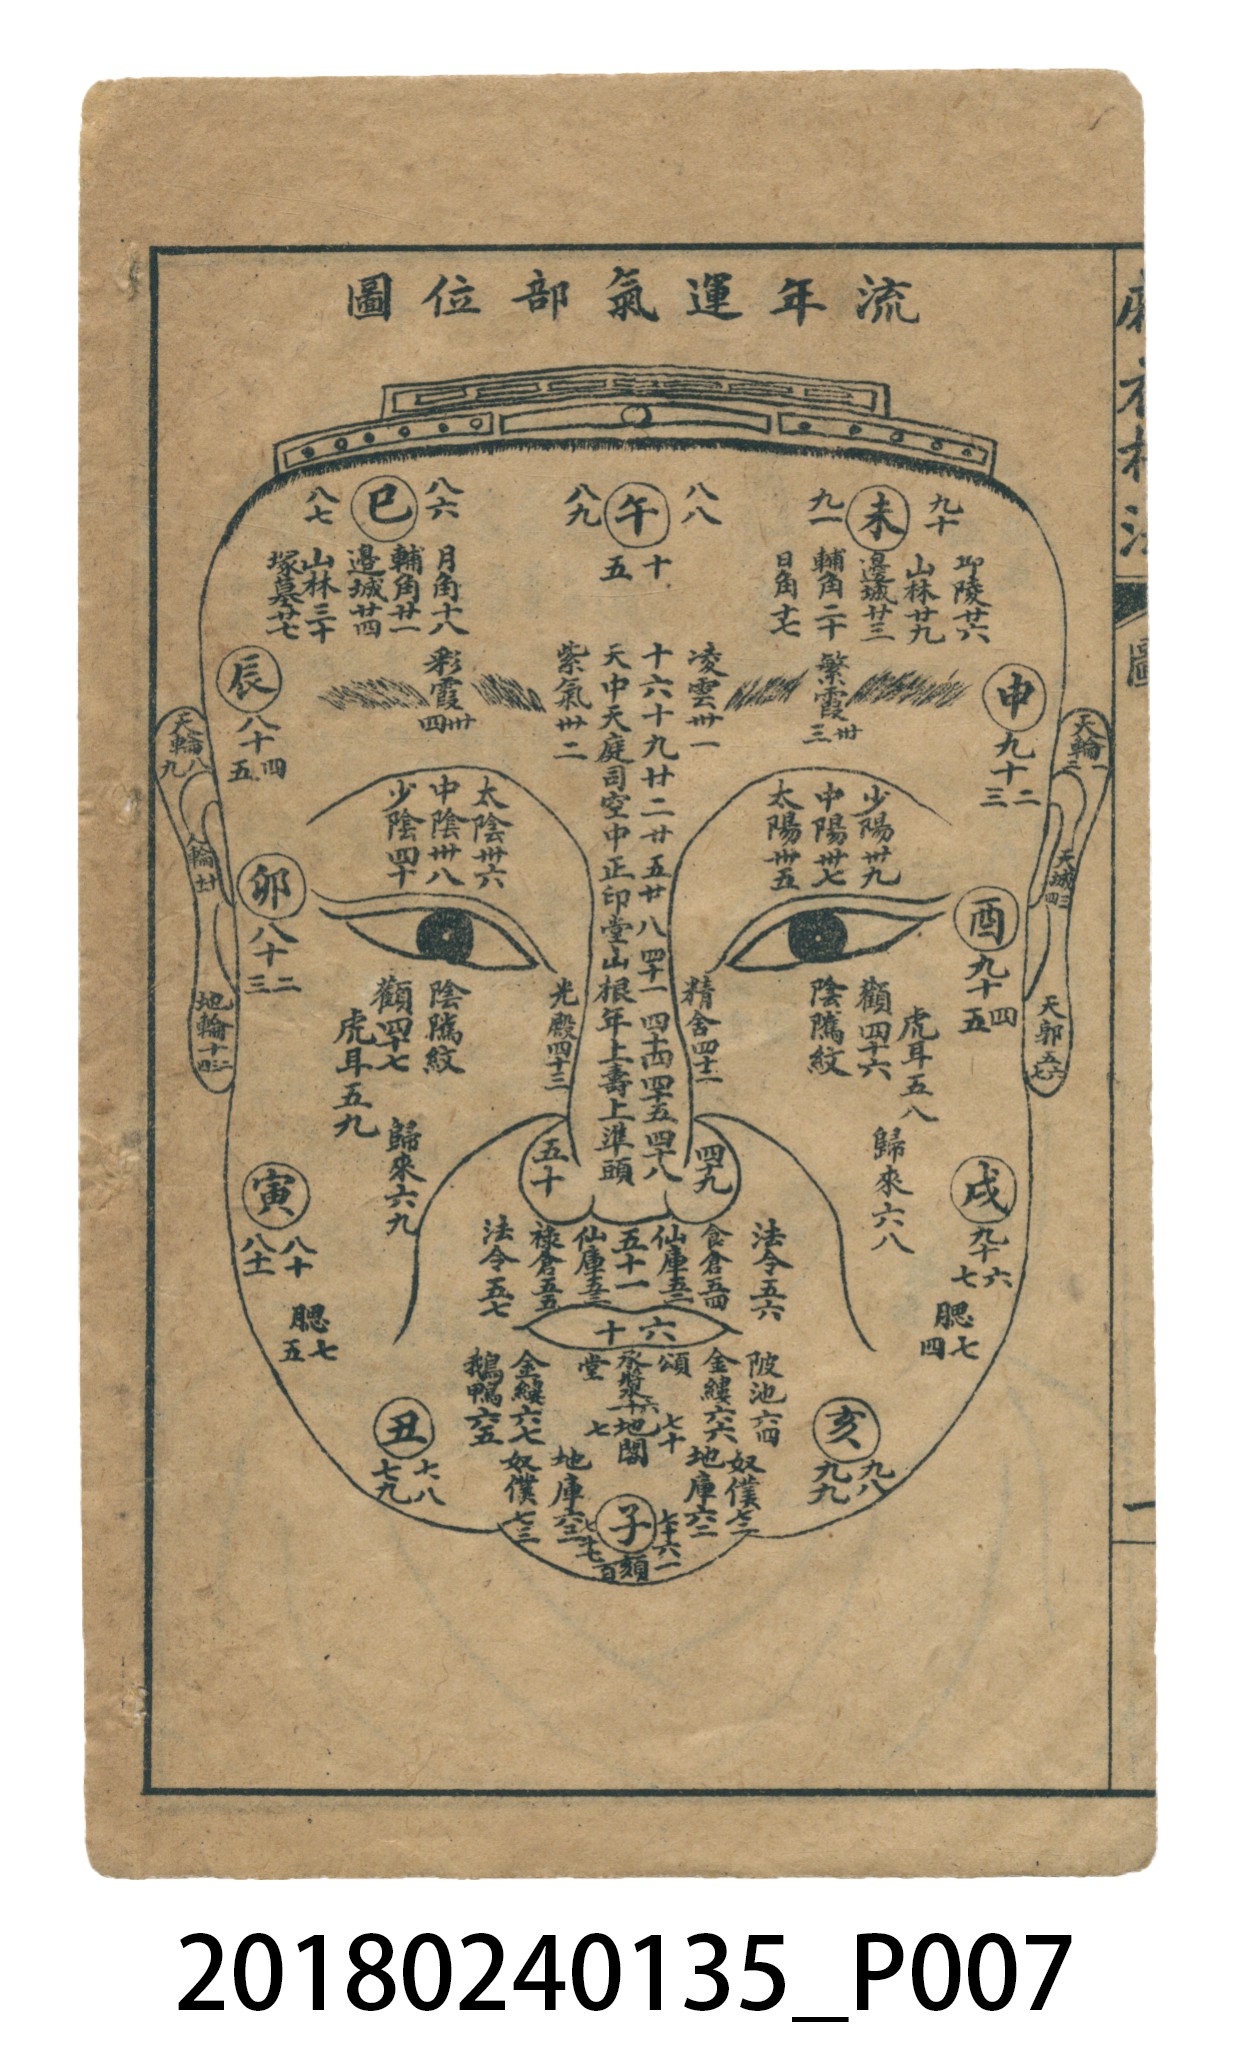 流年運氣部位圖
麻衣相法
圖
一
九十
未
九一
八八
午
八九
八六
巳
八七
卭陵廿六
山林廿九
邊城廿三
輔角二十
日角十七
十五
月角十八
輔角廿一
邊城廿四
山林三十
塚墓廿七
申
九十二三
繁霞卅三
凌雲卅一
十六十九廿二廿五廿八四十一四十四四十五四十八
天中天庭司空中正印堂山根年上壽上準頭
紫氣卅二
彩霞卅四
辰
八十四五
天輪一二
天城三四
天郭五六七
天輪八九
人輪十十一
地輪十二十三十四
少陽卅九
中陽卅七
太陽卅五
太陰卅六
中陰卅八
少陰四十
酉
九十四五
卯
八十二三
虎耳五八
顴四十六
陰隲紋
精舍四十二
光殿四十三
陰隲紋
顴四十七
虎耳五九
歸來六八
歸來六九
四九
五十
戌
九十六七
寅
八十
八十一
法令五六
食倉五四
仙庫五二
五十一
仙庫五三
祿倉五五
法令五七
腮七四
腮七五
六十
陂池六四
金縷六六
頌七十
承漿六十一
地閣
堂七
金縷六七
鵝鴨六五
亥
九八
九九
丑
七八
七九
奴僕七二
地庫六二
地庫六三
奴僕七三
子
七十六
七七
一百
頦
20180240135_P007